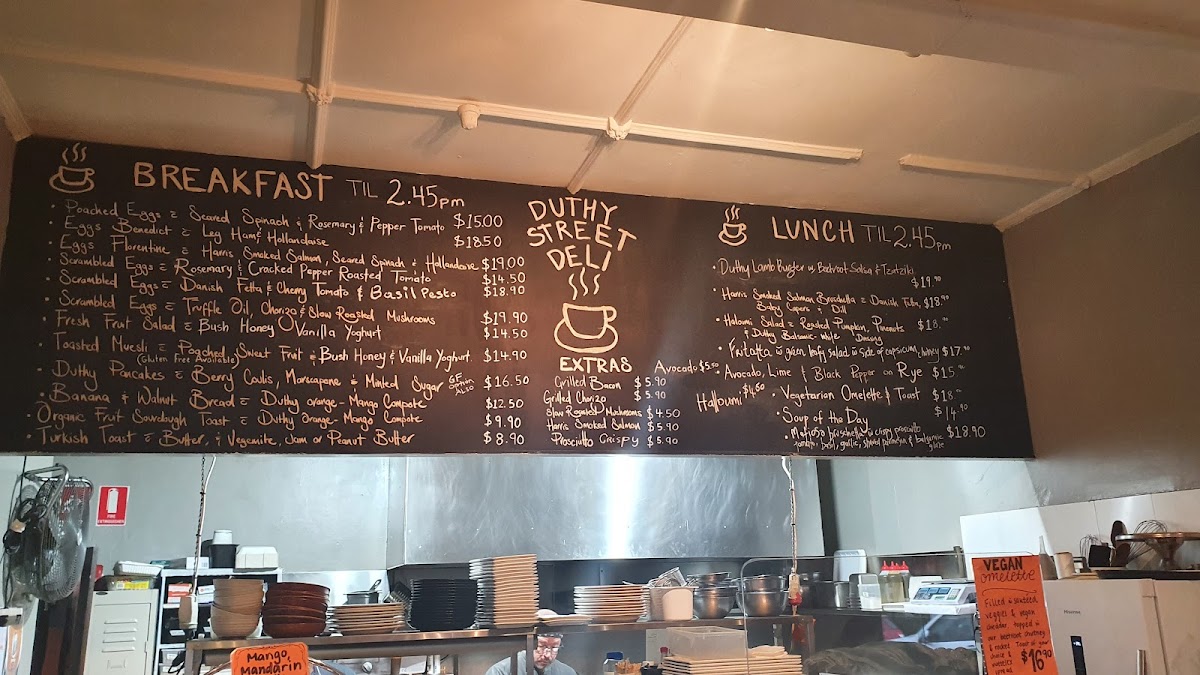 BREAKFAST TIL 2.45pm
Poached Eggs c Seared Spinach & Rosemary & Pepper Tomato $15.00
Eggs Benedict c Leg Ham & Hollandaise $18.50
Eggs Florentine c Harris Smoked Salmon, Seared Spinach & Hollandaise $19.00
Scrambled Eggs c Rosemary & Cracked Pepper Roasted Tomato $14.50
Scrambled Eggs c Danish Fetta & Cherry Tomato & Basil Pesto $18.90
Scrambled Eggs c Truffle Oil, Chorizo & Slow Roasted Mushrooms $19.90
Fresh Fruit Salad c Bush Honey Vanilla Yoghurt $14.50
Toasted Muesli c Poached Sweet Fruit & Bush Honey & Vanilla Yoghurt. $14.90
(Gluten Free Available)
Duthy Pancakes c Berry Coulis, Marscapone & Minted Sugar GF Option Also $16.50
Banana & Walnut Bread c Duthy Orange-Mango Compote $12.50
Organic Fruit Sourdough Toast c Duthy Orange-Mango Compote $9.90
Turkish Toast c Butter, & Vegemite, Jam or Peanut Butter $8.90
DUTHY
STREET
DELI
EXTRAS
Avocado $5.50
Grilled Bacon $5.90
Grilled Chorizo $5.90
Slow Roasted Mushrooms $4.50
Harris Smoked Salmon $5.90
Prosciutto Crispy $5.90
Halloumi $4.50
LUNCH TIL 2.45pm
Duthy Lamb Burger w Beetroot Salsa & Tzatziki
$19.90
Harris Smoked Salmon Bruschetta c Danish Feta, $18.90
Baby Capers & Dill
Haloumi Salad c Roasted Pumpkin, Peanuts $18.
& Duthy Balsamic White Dressing
Frittata c green leafy salad c side of capsicum chutney $17.90
Avocado, Lime & Black Pepper on Rye $15.
Vegetarian Omelette & Toast $18.
Soup of the Day $14.90
Mafiosa bruschetta c crispy prosciutto $18.90
tomato, basil, garlic, shaved parmesan & balsamic glaze
FIRE
EXTINGUISHER
Mango,
Mandarin
VEGAN
omelette
Filled c sauteed
veggies & vegan
cheddar topped c
our beetroot chutney
& rocket. Toast c your
choice &
spread
$16.90
Hisense